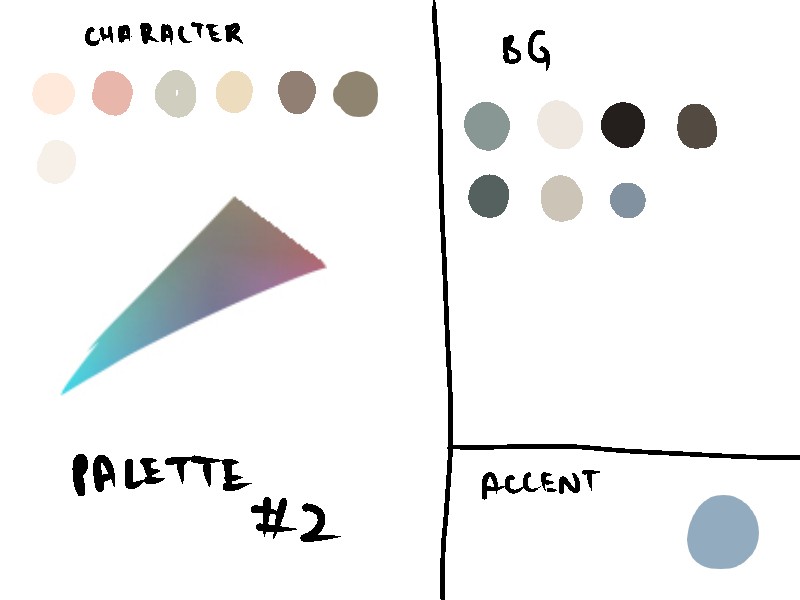 CHARACTER
BG
PALETTE
#2
ACCENT